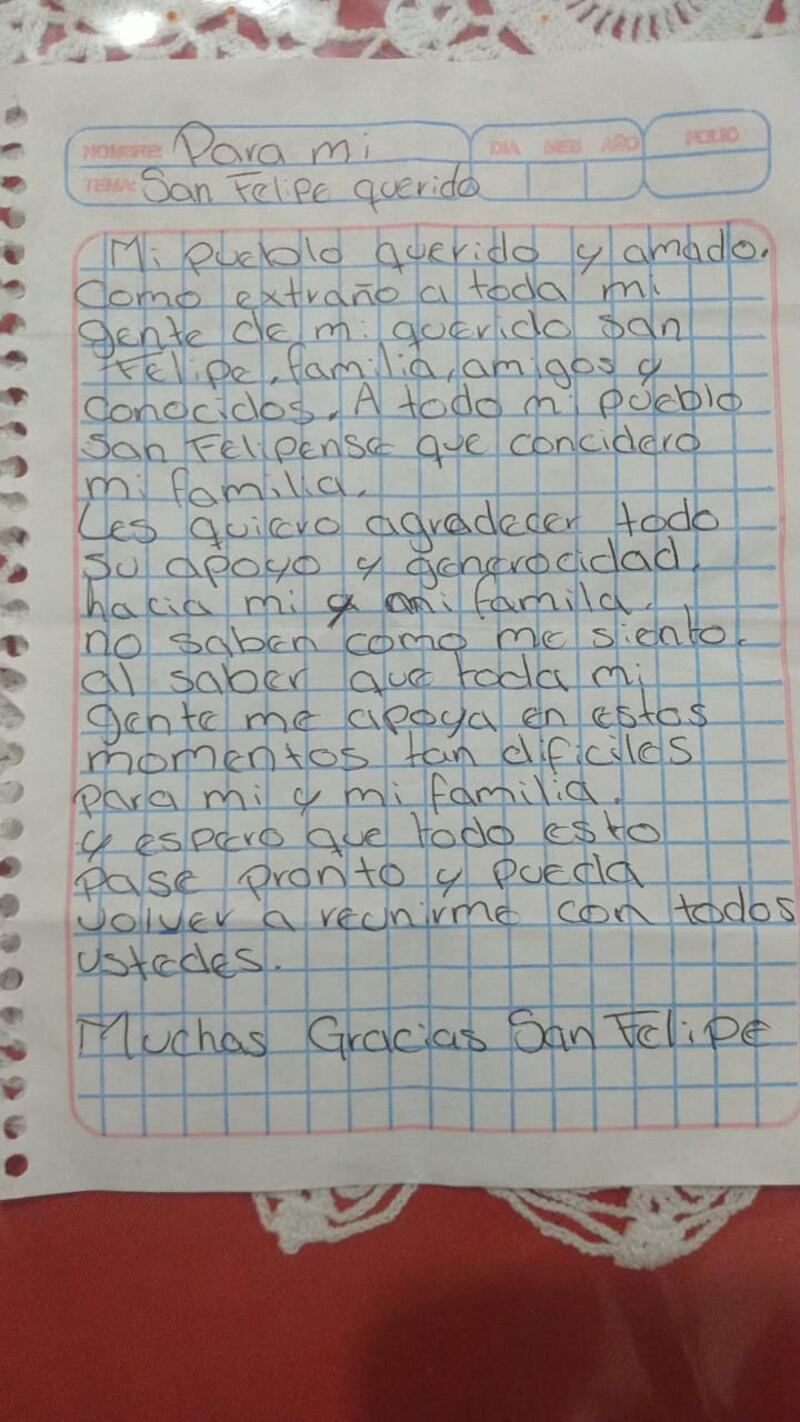 NOMBRE: Para mi
DIA MES AÑO
FOLIO
TEMA: San Felipe querido
Mi pueblo querido y amado.
Como extraño a toda mi
gente de mi querido san
Felipe, familia, amigos y
conocidos. A todo mi pueblo
San Felipense que concidero
mi familia.
Les quiero agradecer todo
su apoyo y generocidad,
hacia mi y mi familia.
no saben como me siento.
al saber que toda mi
gente me apoya en estos
momentos tan dificiles
para mi y mi familia.
y espero que todo esto
pase pronto y pueda
volver a reunirme con todos
ustedes.
Muchas Gracias San Felipe